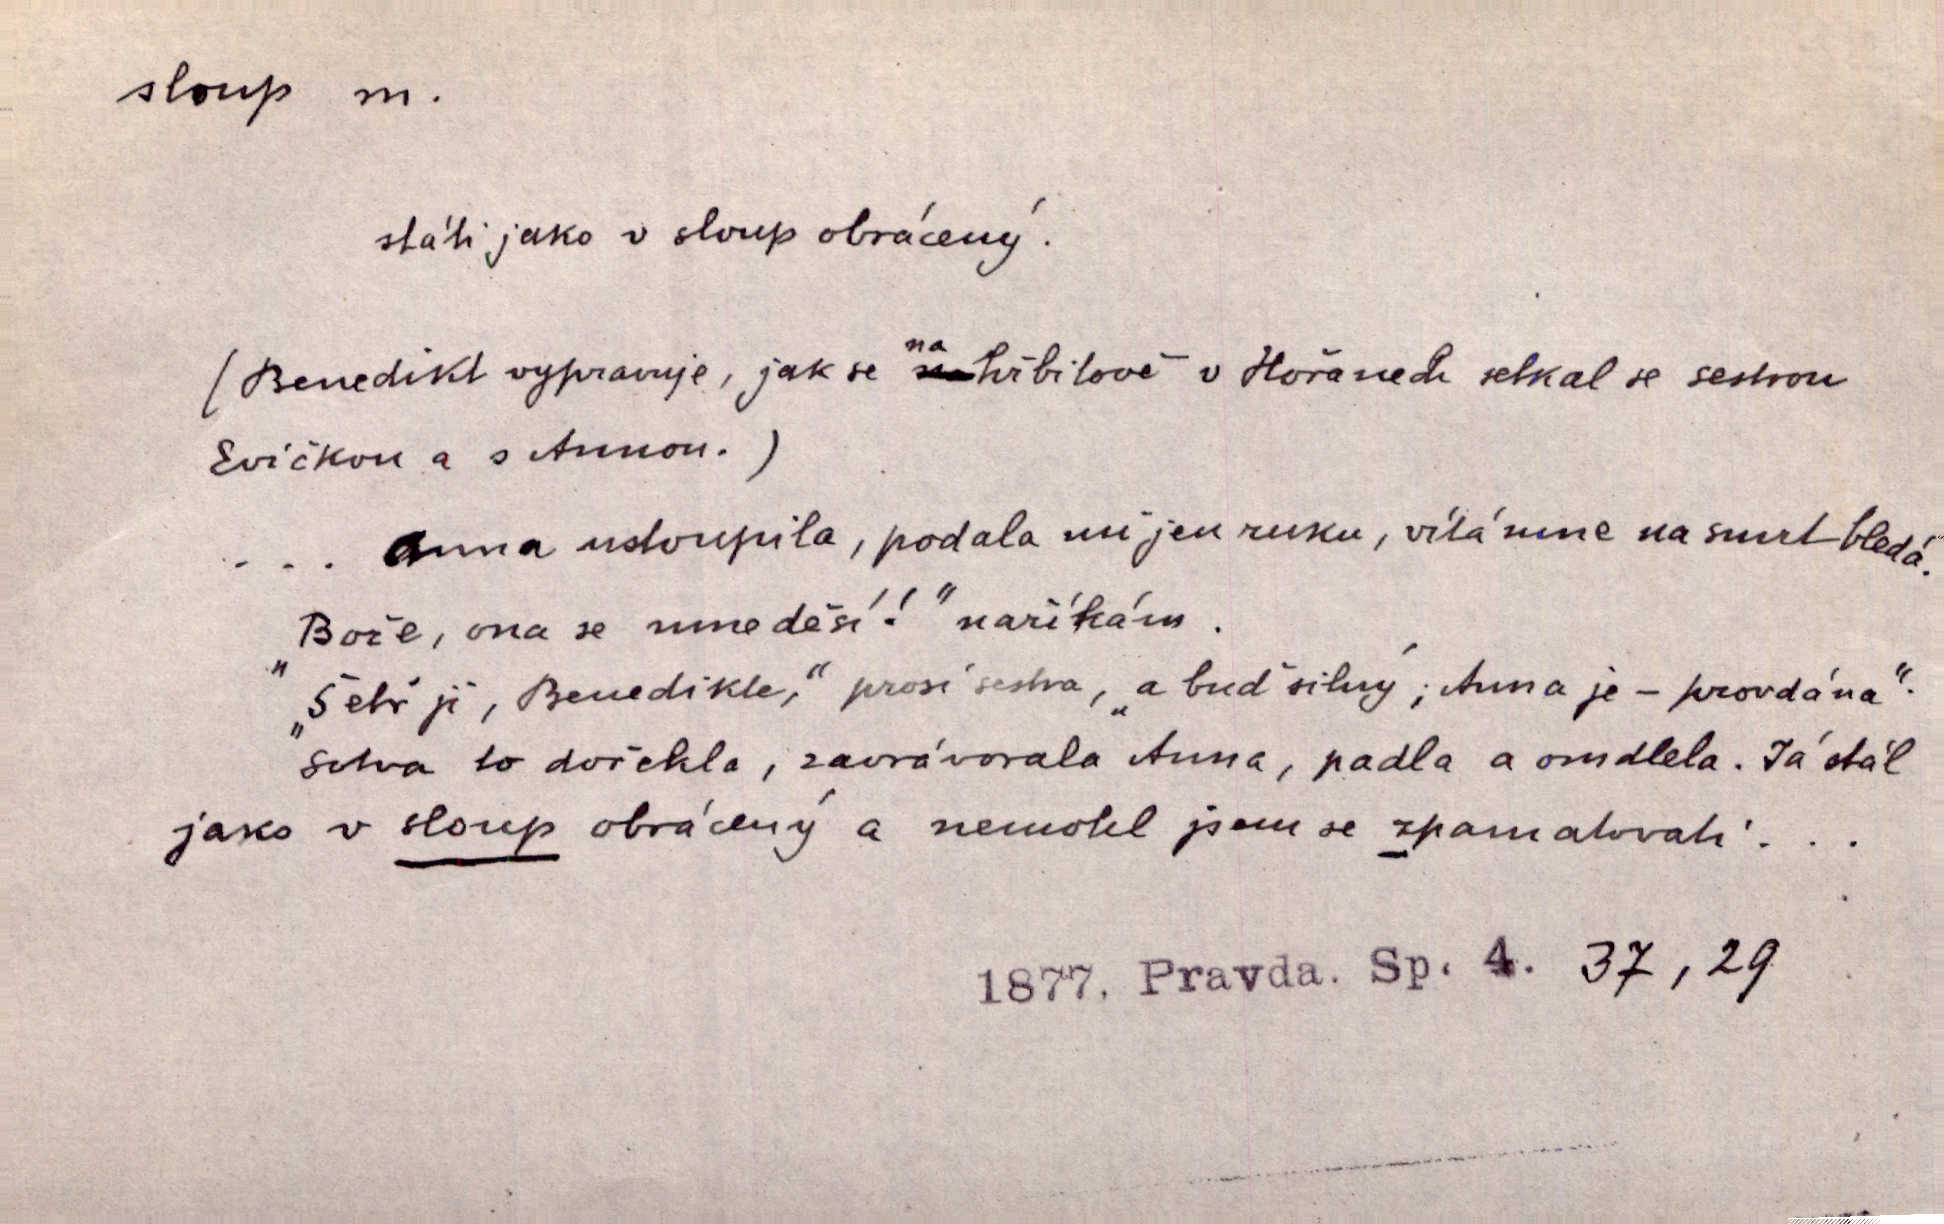 sloup m.
státi jako v sloup obrácený.
(Benedikt vypravuje, jak se na hřbitově v Hořanech setkal se sestrou
Evičkou a s Annou.)
... Anna ustoupila, podala mi jen ruku, vítá mne na smrt bledá.
"Bože, ona se mne děsí!" naříkám.
„Šetř jí, Benedikte," prosí sestra, „a buď silný; Anna je – provdána".
Sotva to dořekla, zavrávorala Anna, padla a omdlela. Já stál
jako v sloup obrácený a nemohl jsem se zpamatovati ...
1877. Pravda. Sp. 4. 37, 29